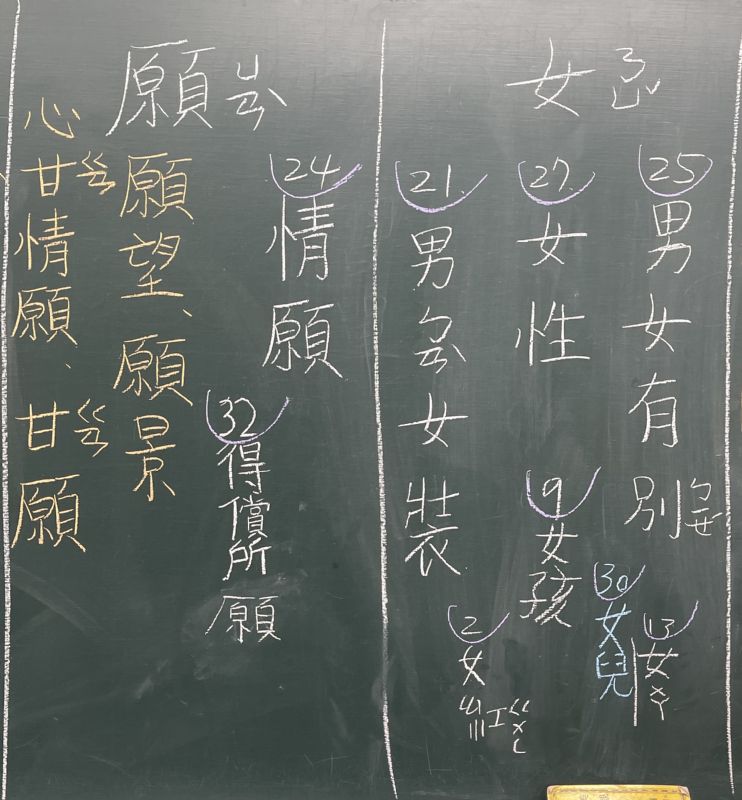 女ㄋㄩˇ
25 男女有別
27 女性
9 女孩
30 女兒
13 女
21. 男ㄅㄢˋ女裝
2 女紅ㄍㄨㄥ
願ㄩㄢˋ
24 情願
32 得償所願
願望、願景
心甘ㄍㄢ情願、甘ㄍㄢ願